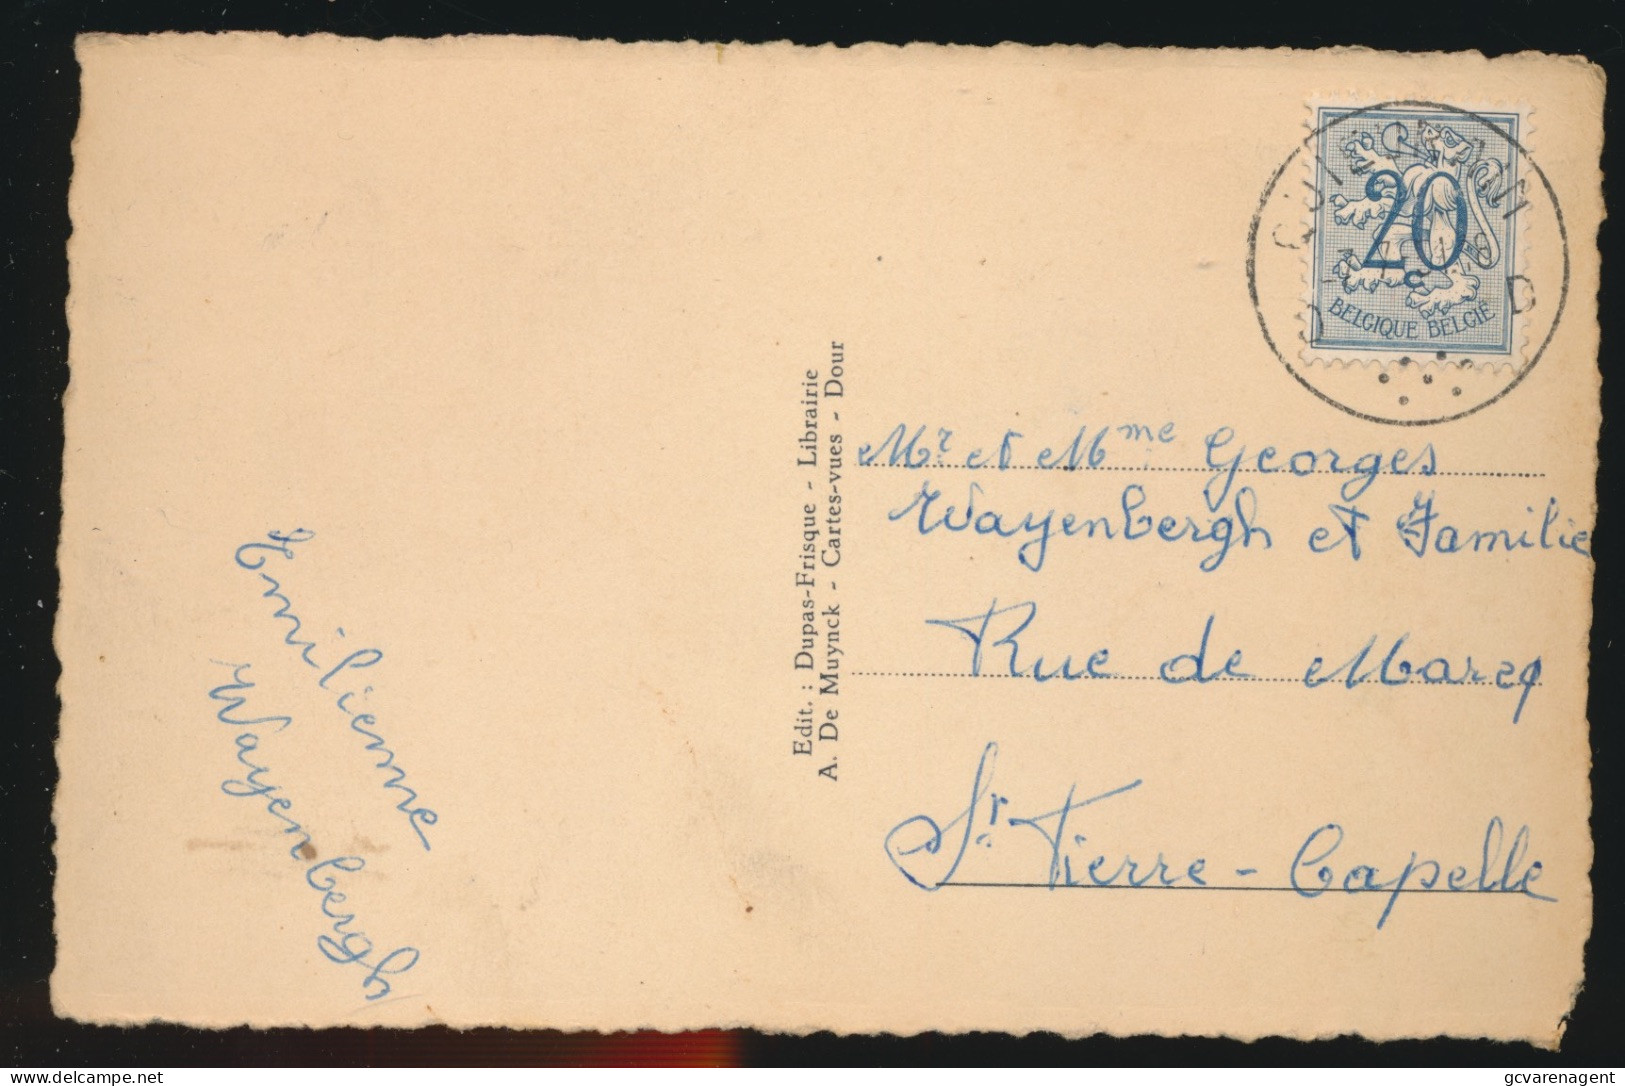 Emilienne
Wayenbergh
Edit. : Dupas-Frisque - Librairie
A. De Muynck - Cartes-vues - Dour
20
c
BELGIQUE BELGIË
Mr et Mme Georges
Wayenbergh et Familie
Rue de Marcq
St. Pierre - Capelle
delcampe.net
gcvarenagent